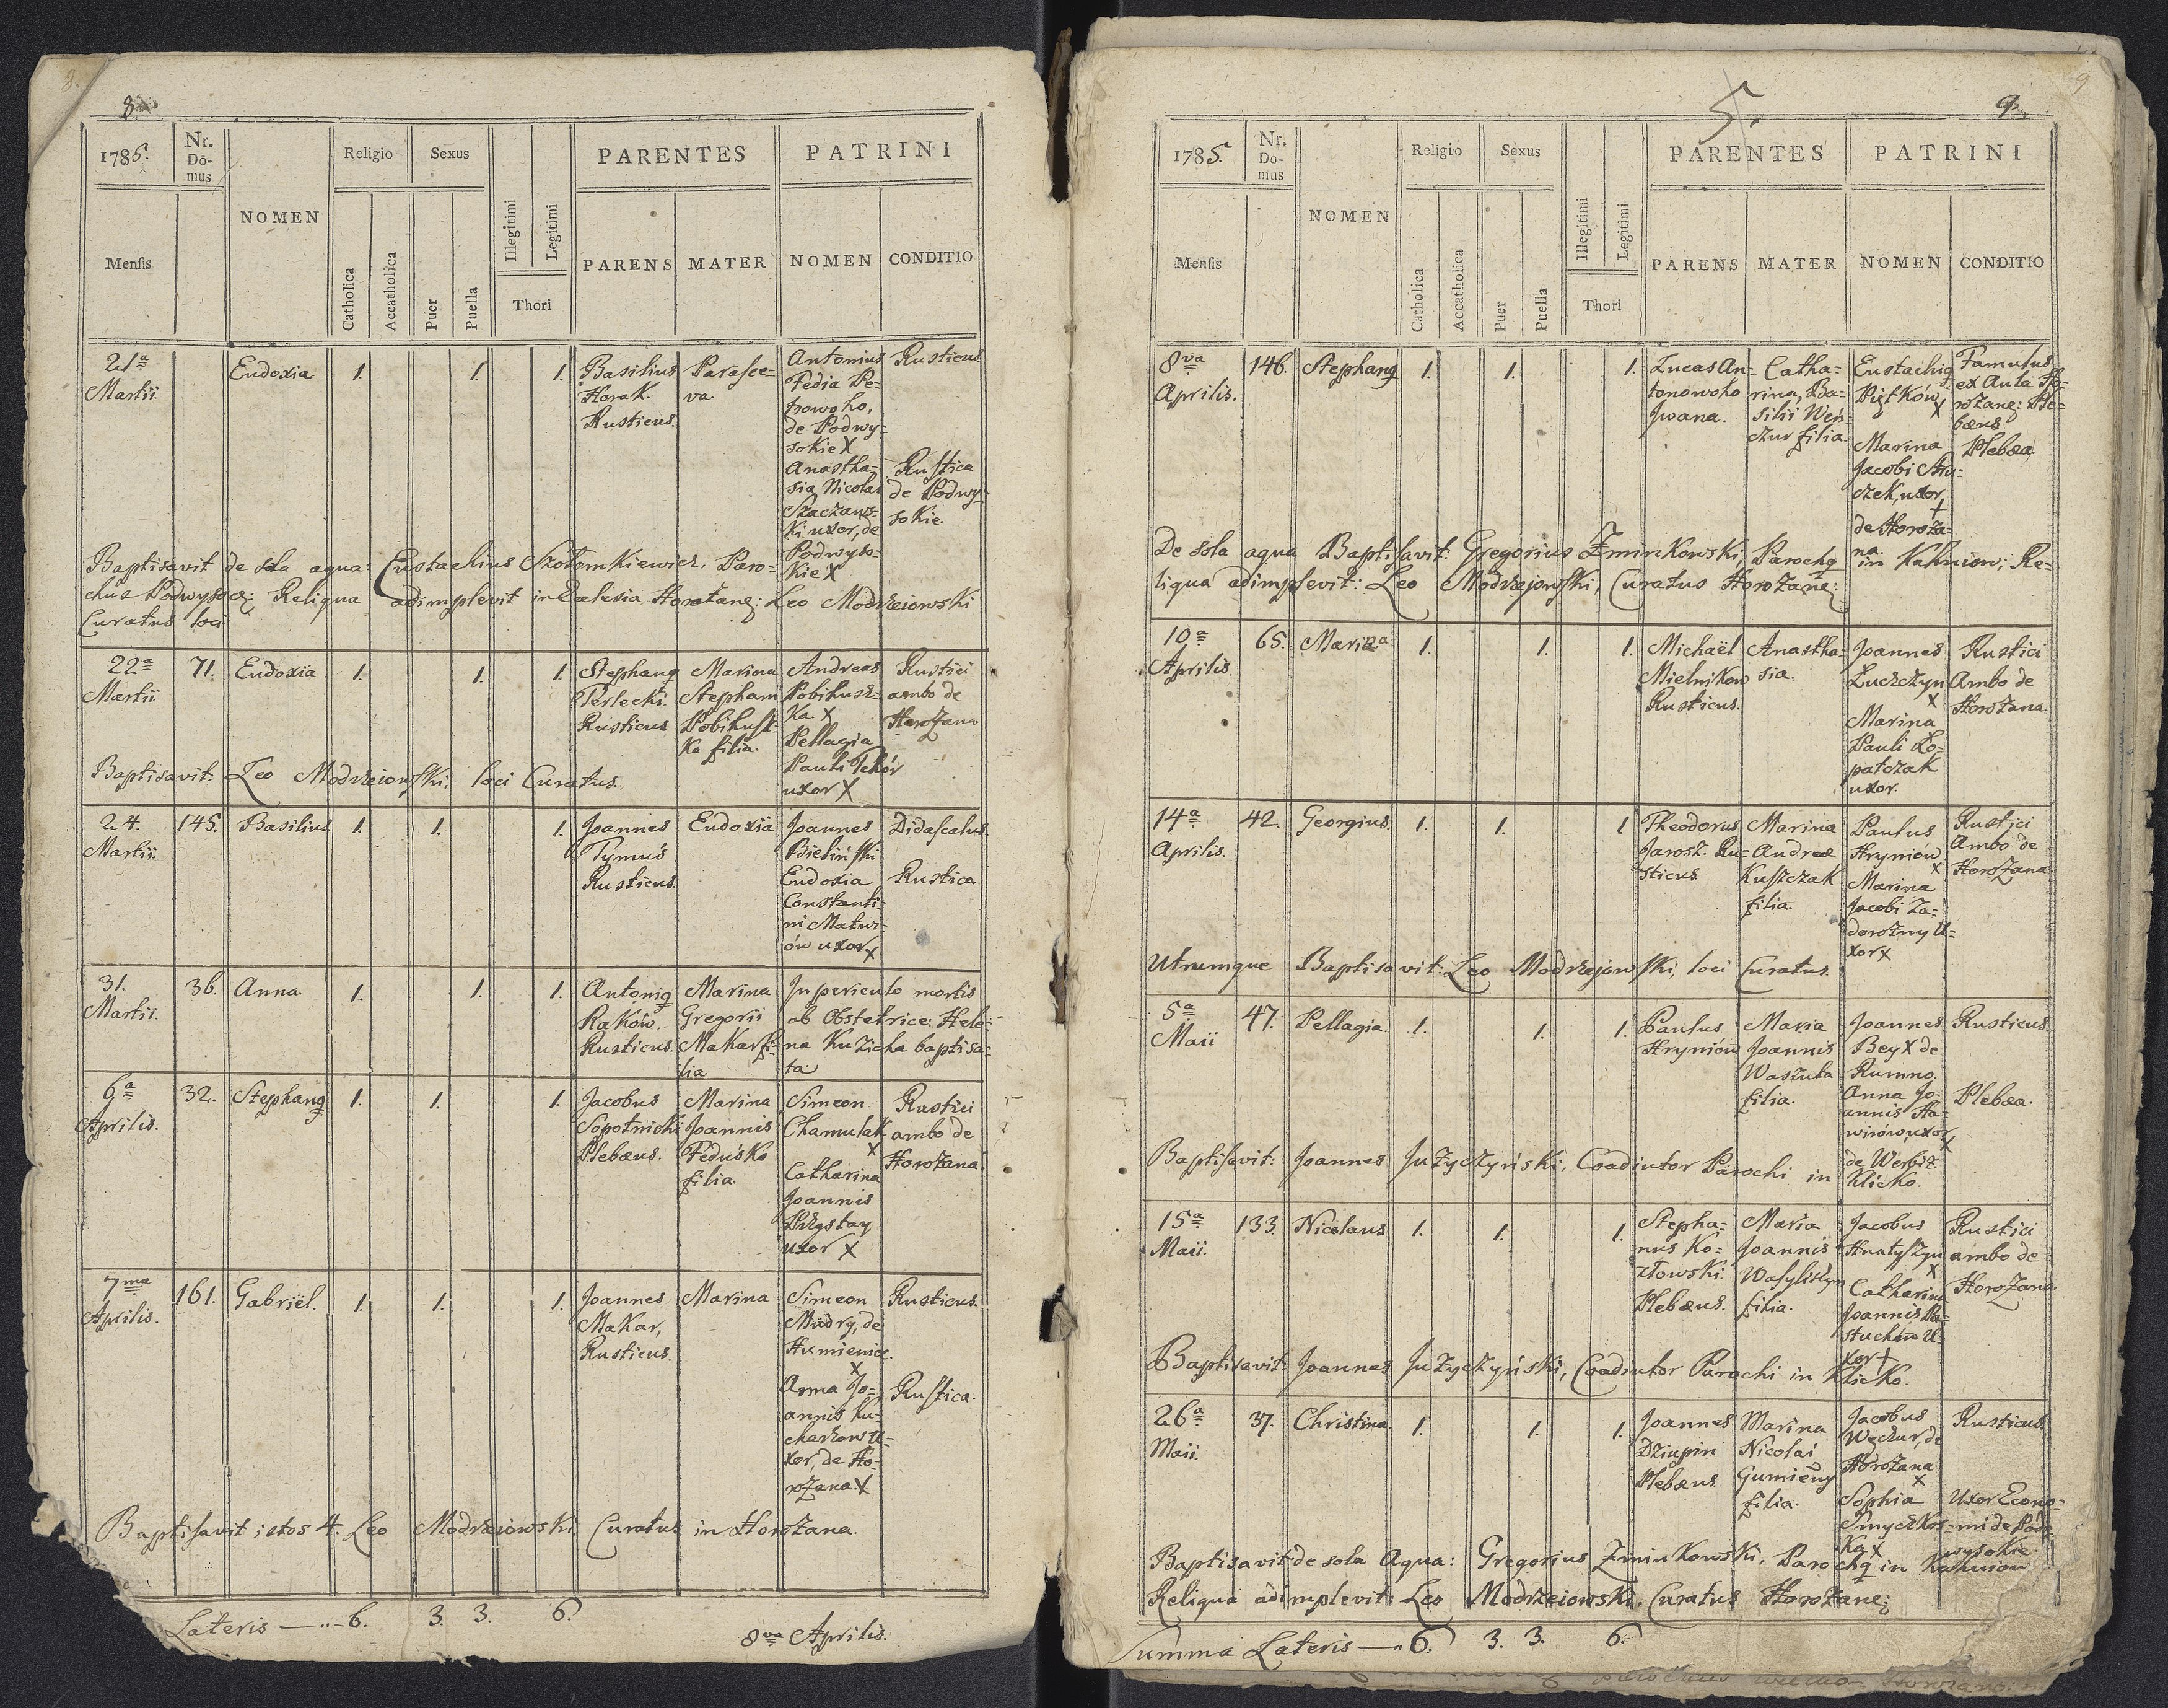 8.
8
1785.
Nr. Do-mus
NOMEN
Religio
Sexus
PARENTES
PATRINI
Mensis
Catholica
Accatholica
Puer
Puella
Illegitimi
Legitimi
Thori
PARENS
MATER
NOMEN
CONDITIO
21a Martii
Eudoxia
1.
1.
1.
Basilius
Horak.
Rusticus.
Parasce=
va.
Antonius
Fedia Pe=
trowoho,
de Podwy=
sokie X
Anastha=
sia Nicolai
Szaczaws=
ki uxor, de
Podwyso=
kie X
Rusticus
Rustica
de Podwy=
sokie.
Baptisavit de sola aqua: Eustachius Szotomkiewicz, Paro=
chus Podwysocę; Reliqua adimplevit in Ecclesia Horožanę: Leo Modrzeiowski
Curatus loci
22a Martii
71.
Eudoxia
1.
1.
1.
Stephanq
Terlecki
Rusticus
Marina
Stephani
Pobihusz=
ka filia.
Andreas
Pobihusz=
ka. X
Pellagia
Pauli Tchór
uxor X
Rustici
ambo de
Horožana
Baptisavit: Leo Modrzeiowski, loci Curatus.
24. Martii
145.
Basilius
1.
1.
1.
Joannes
Tymuś
Rusticus.
Eudoxia
Joannes
Bieliński
Eudoxia
Constanti=
ni Matwi=
ów uxor X
Didascalus.
Rustica
31. Martii.
36.
Anna.
1.
1.
1.
Antoniq
Raków.
Rusticus.
Marina
Gregorii
Makar fi=
lia
In periculo mortis
ab Obstetrice: Hele=
na Kuzicha baptisa=
ta.
6a Aprilis.
32.
Stephanq
1.
1.
1.
Jacobus
Sopotnicki
Plebæus.
Marina
Joannis
Feduśko
filia.
Simeon
Chamulak
X
Catharina
Joannis
Przystay
uxor X
Rustici
ambo de
Horožana.
7ma Aprilis.
161.
Gabriël.
1.
1.
1.
Joannes
Makar,
Rusticus.
Marina
Simeon
Mudry, de
Humienice.
X
Anna Jo=
annis Ku=
charzow u=
xor, de Ho=
rožana. X
Rusticus.
Rustica.
Baptisavit istos 4. Leo Modrzeiowski Curatus in Horožana.
Lateris — 6. 3. 3. 6.
8va Aprilis.
9
5.
9.
1785.
Nr. Do-mus
NOMEN
Religio
Sexus
PARENTES
PATRINI
Mensis
Catholica
Accatholica
Puer
Puella
Illegitimi
Legitimi
Thori
PARENS
MATER
NOMEN
CONDITIO
8va Aprilis.
146.
Stephanq
1.
1.
1.
Lucas An=
tonowoho
Jwana.
Catha=
rina, Ba=
silii Weń=
czur filia.
Eustachiq
Piętków,
X
Marina
Jacobi
uxor,
+
de Horoža=
na.
Famulus
ex Aula Ho=
rožanę: Ple=
bæus
Plebæa.
De sola aqua Baptisavit: Gregorius Žminkowski, Parochq in Kahniow; Re=
liqua adimplevit: Leo Modrzejowski, Curatus Horožanę;
10a Aprilis
65.
Marina
1.
1.
1.
Michaël
Mielnikow
Rusticus.
Anastha=
sia.
Joannes
Łuczczyn
X
Marina
Pauli Ło=
patczak
uxor.
Rustici
Ambo de
Horožana.
14a Aprilis.
42.
Georgius.
1.
1.
1
Theodorus
Jarosz. Ru=
sticus
Marina
Andreæ
Kuszczak
filia.
Paulus
Hryniów
X
Marina
Jacobi Za=
dorožny u=
xor X
Rustici
Ambo de
Horožana.
Utrumque Baptisavit: Leo Modrzejowski, loci Curatus.
5a Maii
47.
Pellagia.
1.
1.
1.
Paulus
Hryniów
Maria
Joannis
Waszuta
filia.
Joannes
Bey X de
Rumno.
Anna Jo=
annis Ha=
wirów uxor
X
de Werbiž
Rusticus.
Plebæa.
Baptisavit: Joannes Južyczyński, Coadiutor Parochi in Klicko.
15a Maii.
133.
Nicolaus
1.
1.
1.
Stepha=
nus Ko=
złowski.
Plebæus.
Maria
Joannis
Wasyliszyn
filia.
Jacobus
Hnatyszyn
X
Catharina
Joannis Pa=
stuchów u=
xor +
Rustici
ambo de
Horožana.
Baptisavit: Joannes Južyczyński, Coadiutor Parochi in Klicko.
26a Maii.
37.
Christina.
1.
1.
1.
Joannes
Dziupin
Plebæus
Marina
Nicolai
Gumienny
filia.
Jacobus
Węczur, de
Horožana
X
Sophia
Smyczkos=
ka X
Rusticus
Uxor Econo=
mi de Pod=
wysokie.
Baptisavit de sola Aqua: Gregorius Žminkowski, Parochq in Kahniow
Reliqua adimplevit: Leo Modrzeiowski, Curatus Horožanę;
Summa Lateris — 6. 3. 3. 6.